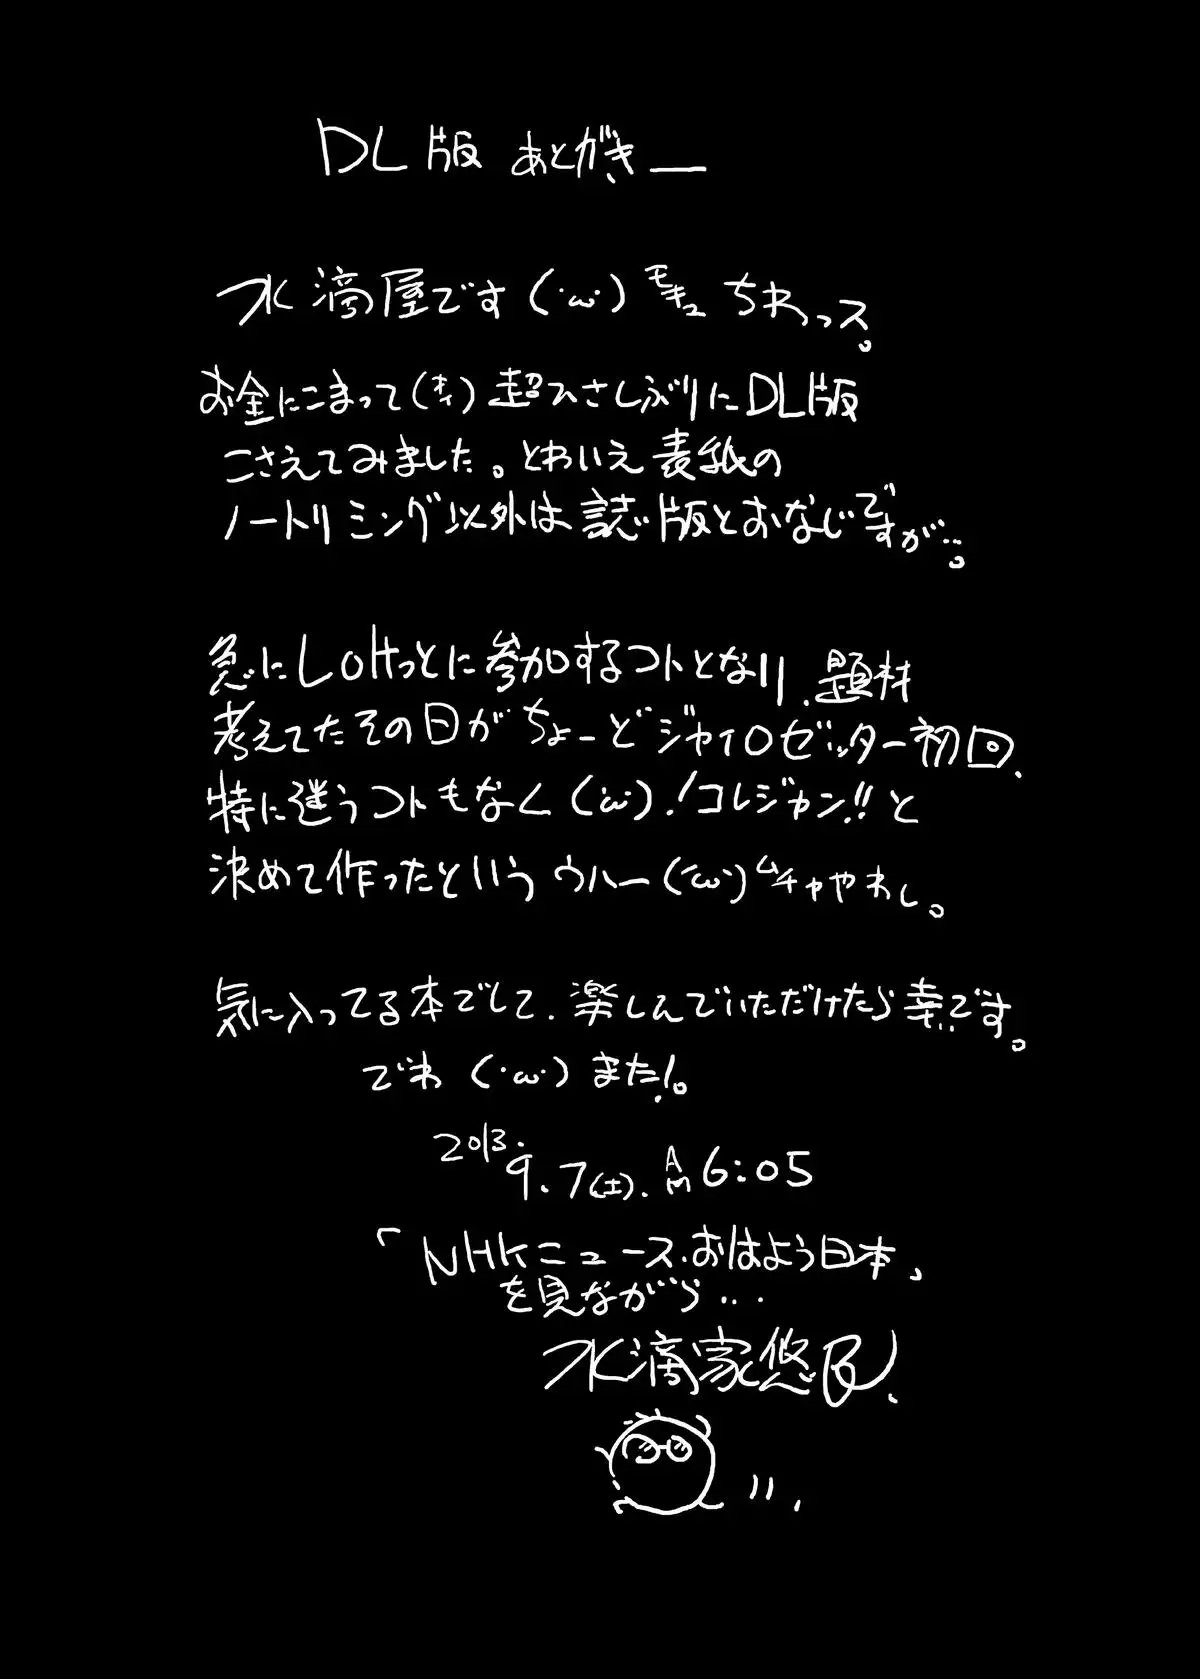 DL版 あとがきー
水滴屋です(・ω・)モキュ ちわっス。
お金にこまって(オイ)超ひさしぶりにDL版
こさえてみました。とわいえ表紙の
ノートリミング以外は誌版とおなじですが…。
急にLOHっとに参加するコトとなり、題材
考えてたその日がちょーどジャイロゼッター初回、
特に迷うコトもなく(・ω・)!コレジャン!!と
決めて作ったという ウハー(・ω・)ムチャやわし。
気に入ってる本でして、楽しんでいただけたら幸いです。
でわ(・ω・)また!。
2013. 9.7(土). AM6:05
「NHKニュース.おはよう日本」
を見ながら…
水滴家悠